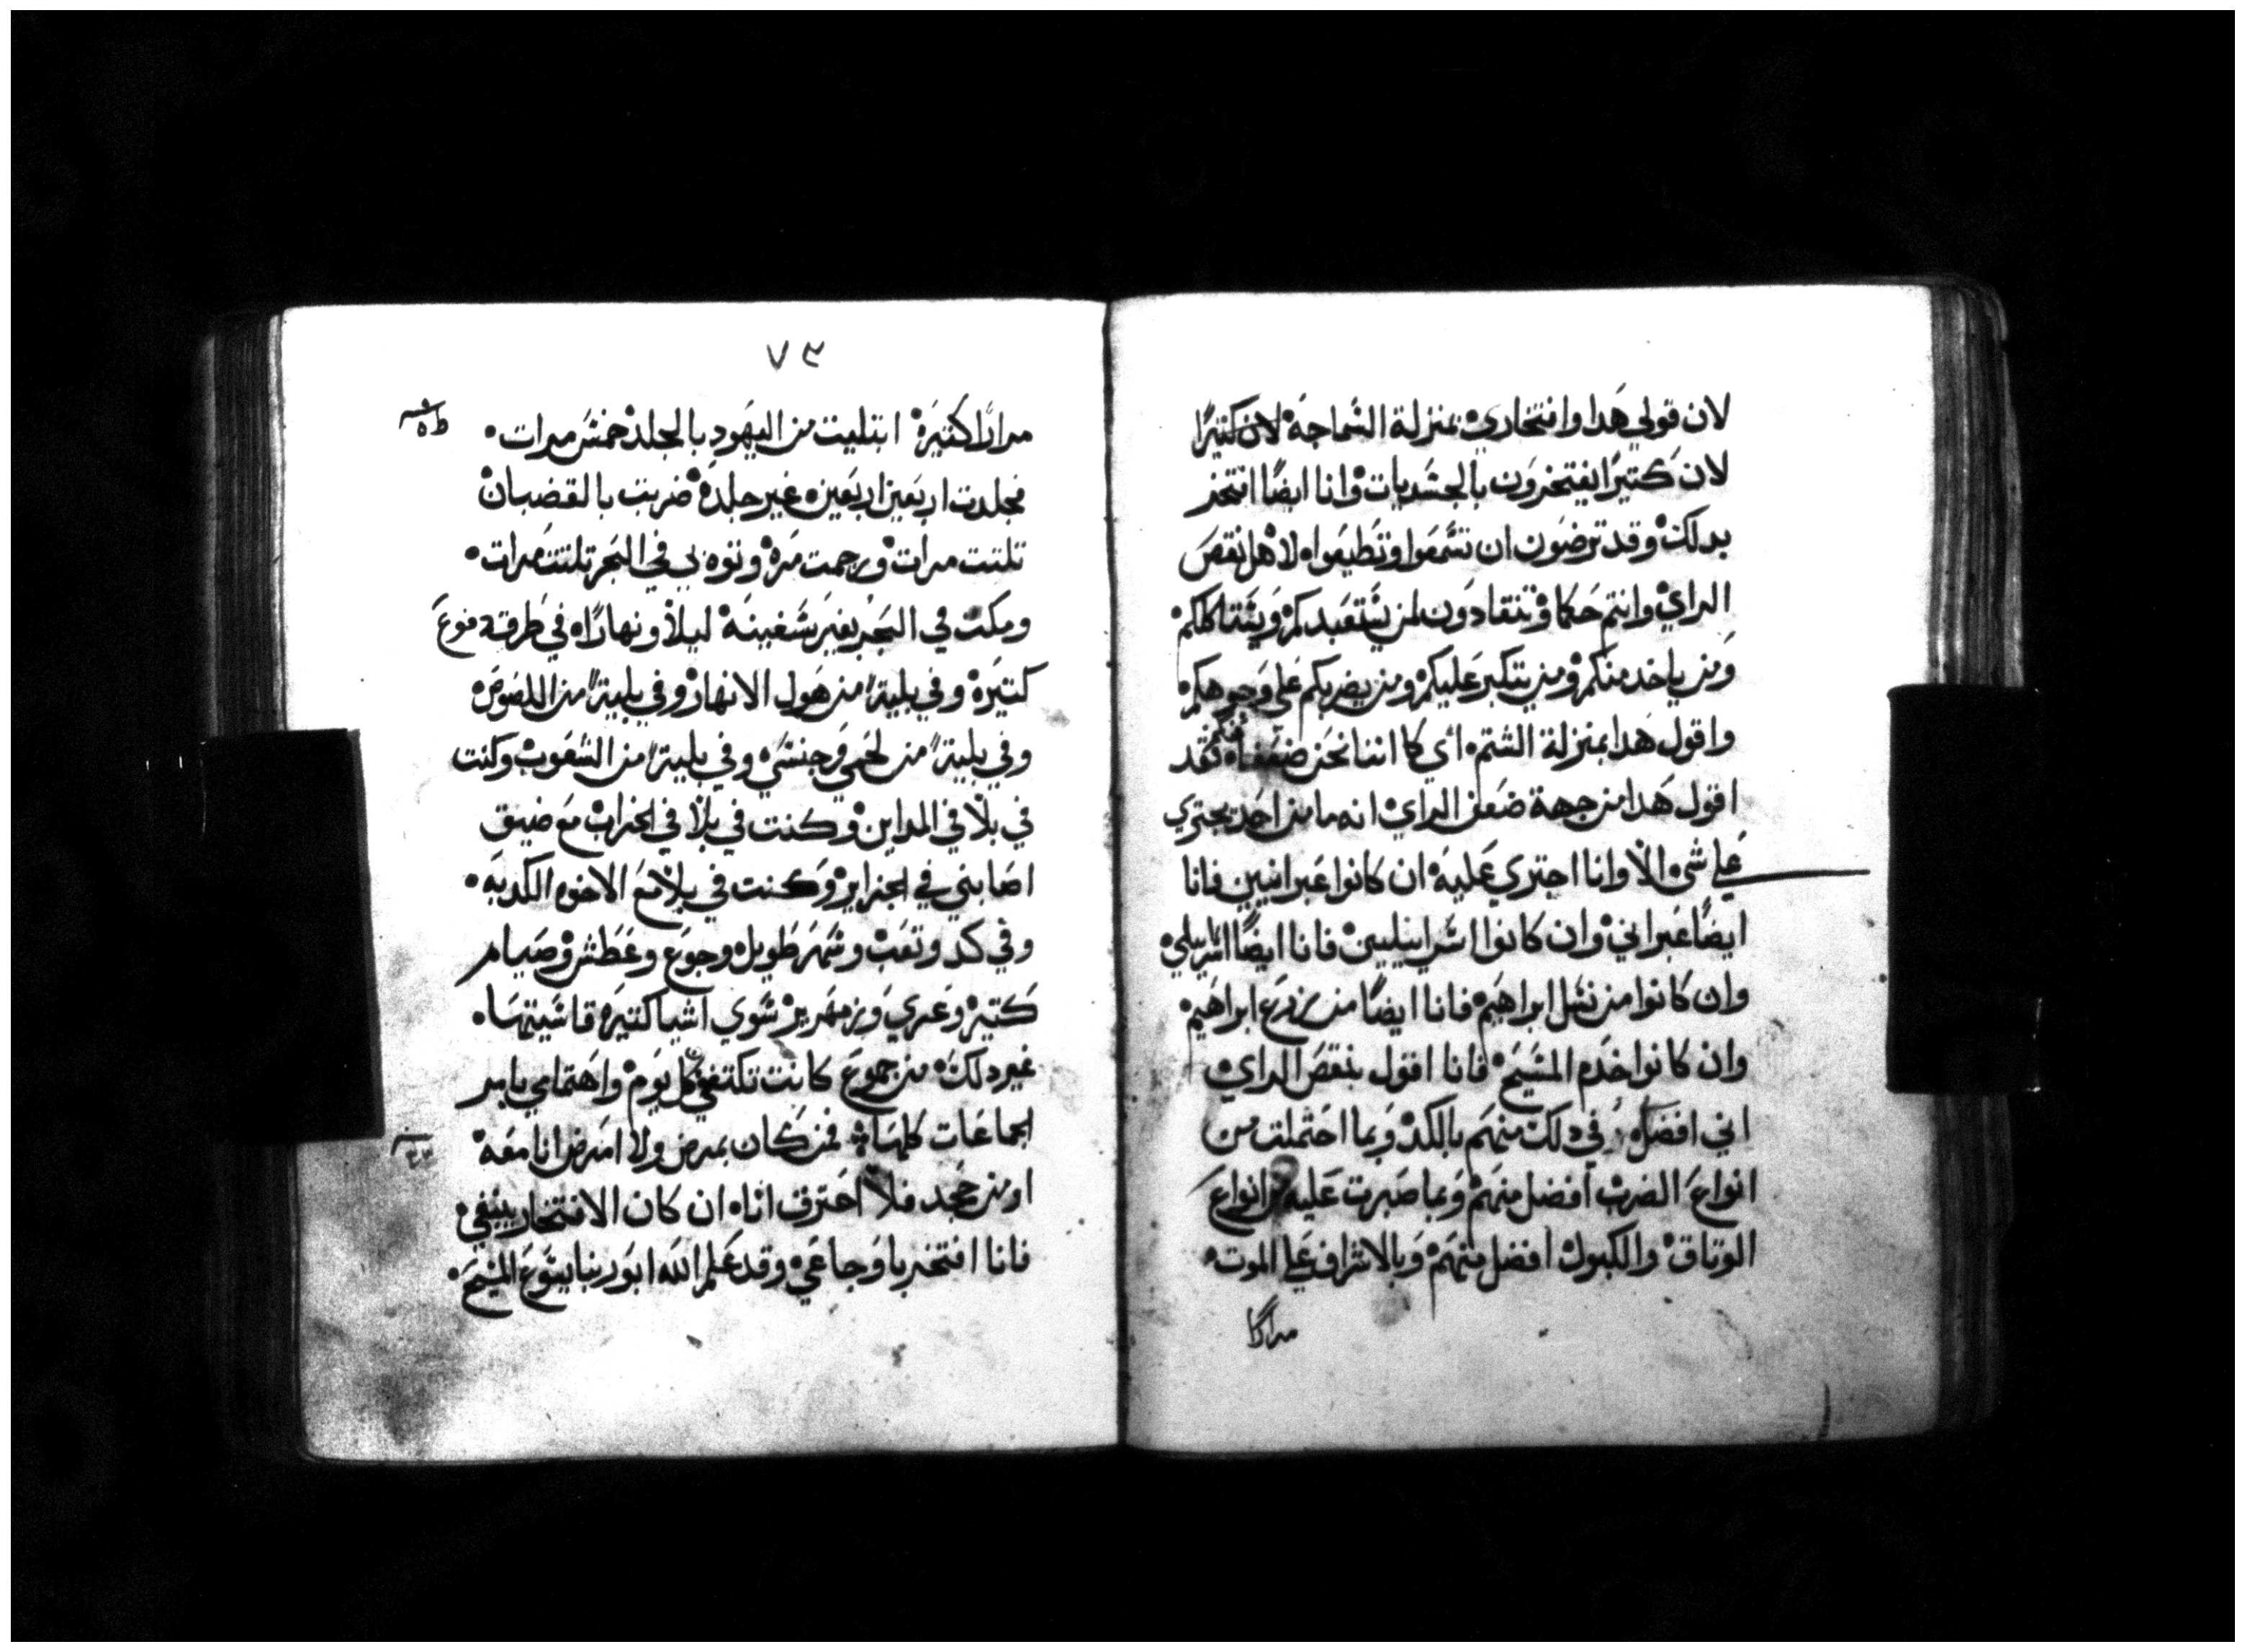 لان قولي هدا وافتخاري بمنزلة السماجه لان كتيرًا
لان كتيرًا يفتخرون بالجسديات وانا ايضًا افتخر
بدلك وقد ترضون ان تسمعوا وتطيعوا لاهل نقص
الراي وانتم حكما وتنقادون لمن يستعبدكم ويتتاكلكم
ومن ياخد منكم ومن يتكبر عليكم ومن يضربكم علي وجوهكم
واقول هدا بمنزلة الشتم اي كاننا نحن ضعفا فقد
اقول هدا من جهة ضعف الراي انه ما من احد يجتري
علي شي الا وانا اجتري عليه ان كانوا عبرانيين فانا
ايضًا عبراني وان كانوا اسراييليين فانا ايضًا اسراييلي
وان كانوا من نسل ابراهيم فانا ايضًا من زرع ابراهيم
وان كانوا خدم المسيح فانا اقول بنقص الراي
اني افضل في دلك منهم بالكد وبما احتملت من
انواع الضرب افضل منهم وبما صبرت عليه من انواع
الوتاق والكبول افضل منهم وبالاشراف علي الموت
مرارًا
٧٣
مرارًا كتيره ابتليت من اليهود بالجلد خمس مرات
فجلدت اربعين اربعين غير جلده ضربت بالقضبان
تلتت مرات ورجمت مره ونوه بي في البحر تلتت مرات
ومكت في البحر بغير سفينه ليلا ونهارًا في طرقه موع
كتيره وفي بلية من هول الانهار وفي بلية من اللصوص
وفي بلية من لحمي وجنسي وفي بلية من الشعوب وكنت
في بلا في المداين وكنت في بلا في الخراب مع ضيق
اصابني في الجزاير وكنت في بلا مع الاخوه الكدبه
وفي كد وتعب وسهر طويل وجوع وعطش وصيام
كتير وعري وزمهرير سوي اشيا كتيره قاسيتها
غير دلك من جموع كانت تكتفني كل يوم واهتمامي بامر
الجماعات كلها فمن كان يمرض ولا امرض انا معه
او من جحد فلا احترق انا ان كان الافتخار ينبغي
فانا افتخر باوجاعي وقد علم الله ابو ربنا يسوع المسيح